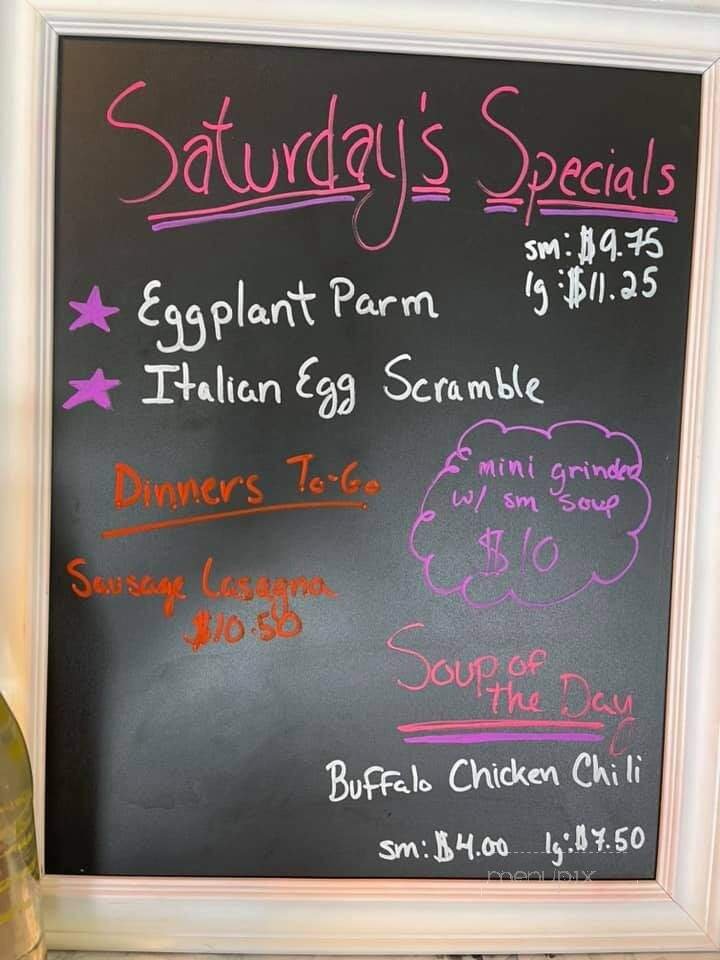 Saturday's Specials
sm: $9.75
lg: $11.25
Eggplant Parm
Italian Egg Scramble
mini grinder
w/ sm soup
$10
Dinners To-Go
Sausage Lasagna
$10.50
Soup of
the Day
Buffalo Chicken Chili
sm: $4.00 lg: $7.50
menupix